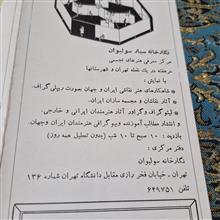 نگارخانه سولیوان
مرکز معرفی هنرهای تجسمی
درهفده در یک نقطه تهران و شهرستانها
با نمایش :
* شاهکارهای هنر نقاشی ایران و جهان بصورت ریپلی گراف.
* آثار نقاشان و مجسمه سازان ایران.
* لیتوگراف و گراور آثار هنرمندان ایرانی و خارجی.
* انتشار مطالب آموزنده و بیوگرافی هنرمندان ایران وجهان.
بازدید : ۱۰ صبح تا ۱۰ شب (بدون تعطیل همه روز)
دفتر مرکزی :
نگارخانه سولیوان
تهران ، خیابان فخر رازی مقابل دانشگاه تهران شماره ۱۳۶
تلفن ۶۴۹۷۵۱